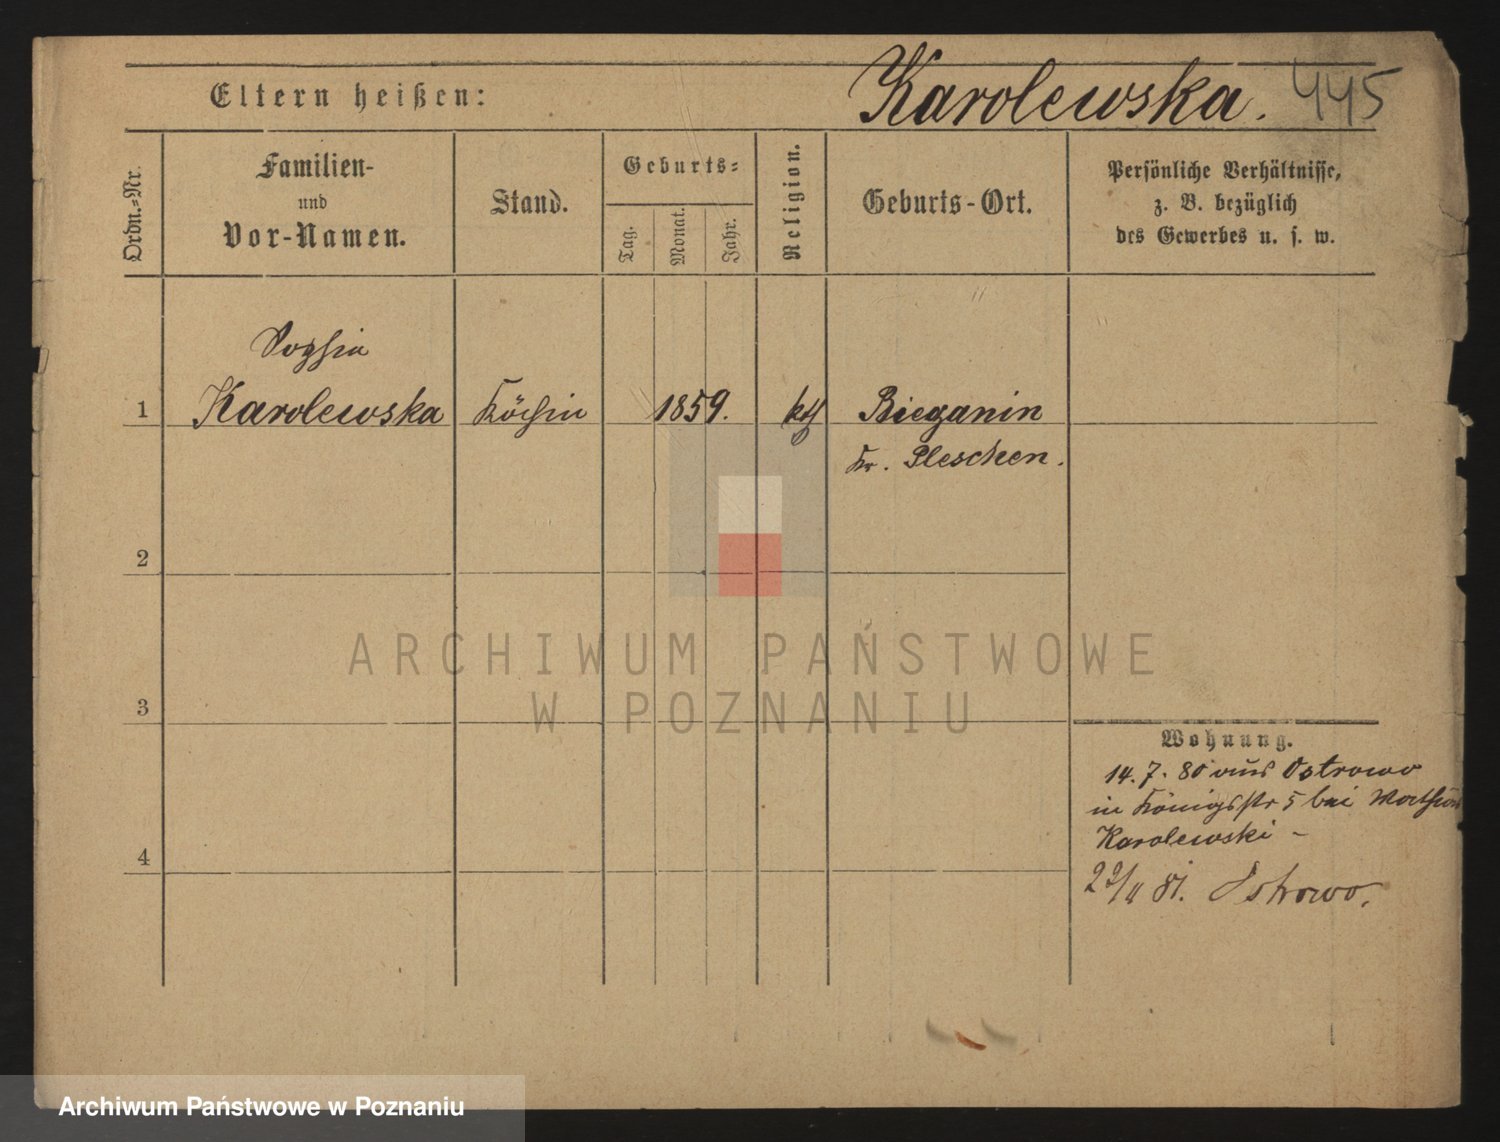 Karolewska. 445
Eltern heißen:
Ordn.-Nr.
Familien-
und
Vor-Namen.
Stand.
Geburts-
Tag.
Monat.
Jahr.
Religion.
Geburts-Ort.
Persönliche Verhältnisse,
z. B. bezüglich
des Gewerbes u. s. w.
Sophia
1 Karolewska Köchin 1859. kth Bieganin
Kr. Pleschen.
2
3
4
Wohnung.
14. 7. 80 aus Ostrowo
in Königsstr 5 bei
Karolewski -
81. Ostrowo.
ARCHIWUM PAŃSTWOWE
W POZNANIU
Archiwum Państwowe w Poznaniu